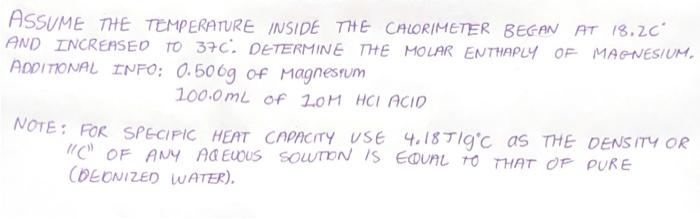 ASSUME THE TEMPERATURE INSIDE THE CALORIMETER BEGAN AT 18.2C°
AND INCREASED TO 37C°. DETERMINE THE MOLAR ENTHAPLY OF MAGNESIUM.
ADDITIONAL INFO: 0.506g of Magnesium
100.0mL of 1.0M HCl ACID
NOTE: FOR SPECIFIC HEAT CAPACITY USE 4.18J/g°C as THE DENSITY OR
"C" OF ANY AQEUOUS SOLUTION IS EQUAL TO THAT OF PURE
(DEONIZED WATER).